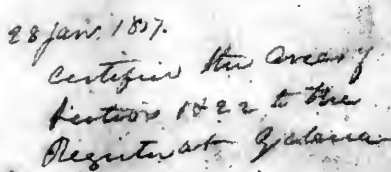 28 Jan. 1857.
Certifies the areas of
Section 18 & 22 to the
Register at Galena